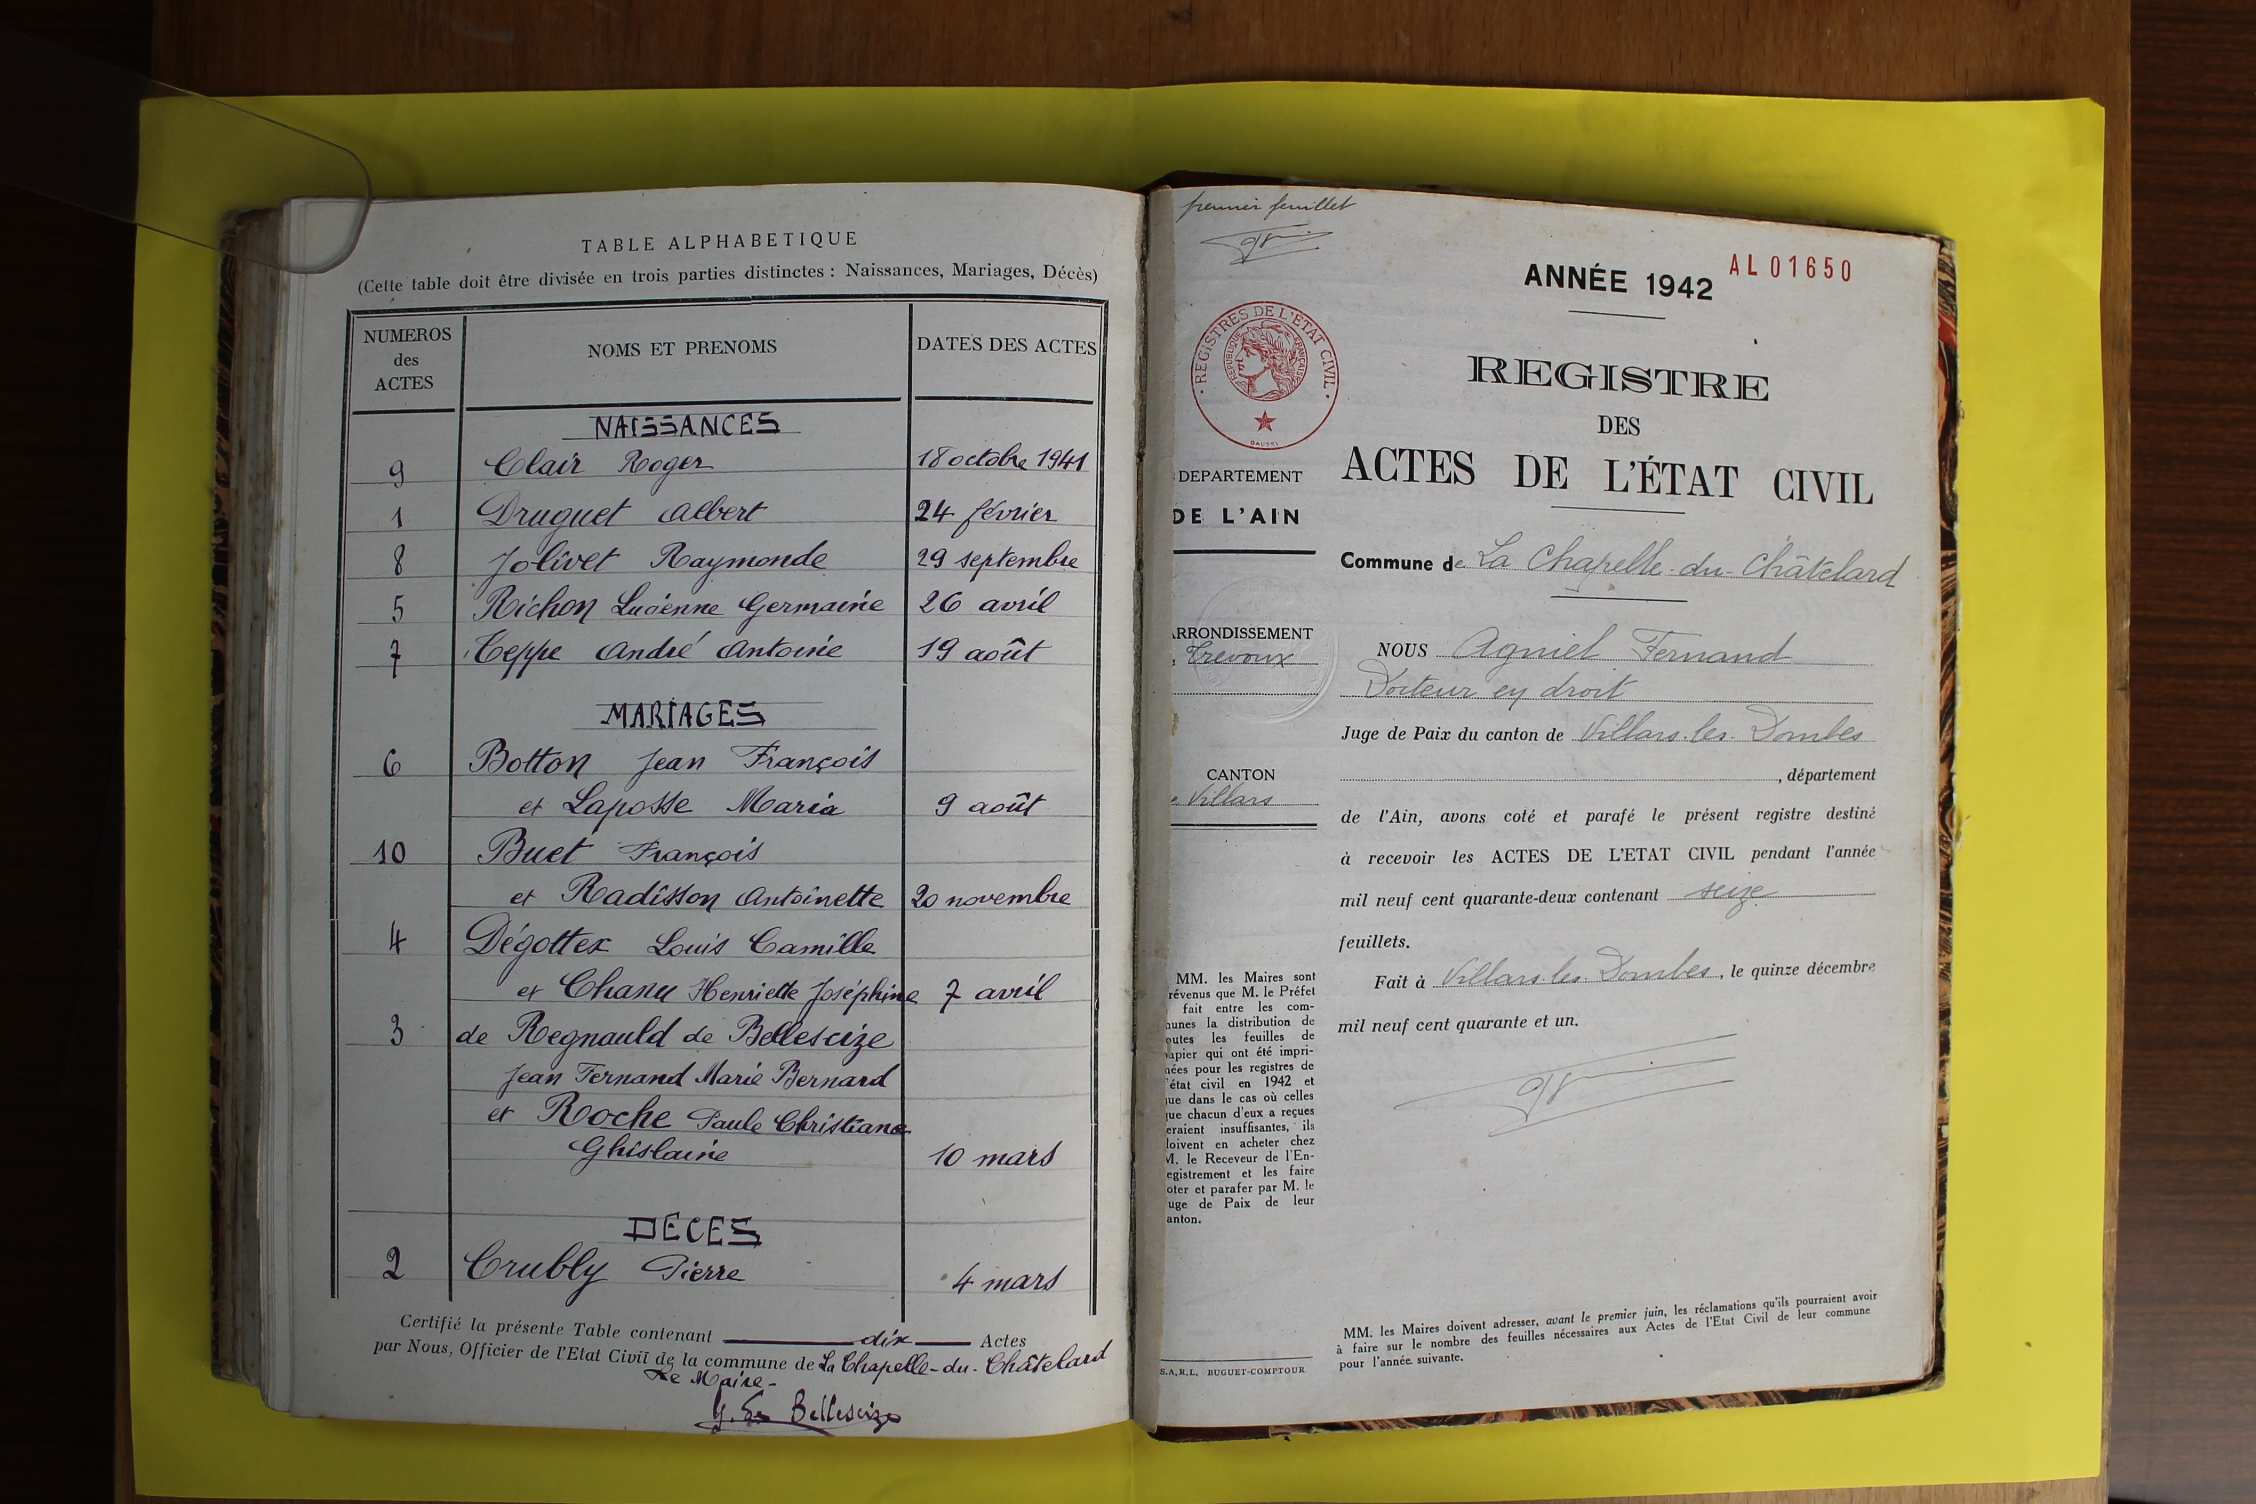 TABLE ALPHABETIQUE
(Cette table doit être divisée en trois parties distinctes : Naissances, Mariages, Décès)
NUMEROS des ACTES NOMS ET PRENOMS DATES DES ACTES
NAISSANCES
9 Clair Roger 18 octobre 1941
1 Druguet Albert 24 février
8 Jolivet Raymonde 29 septembre
5 Richon Lucienne Germaine 26 avril
7 Teppe André Antoine 19 août
MARIAGES
6 Botton Jean François
et Laposse Maria 9 août
10 Buet François
et Radisson Antoinette 20 novembre
4 Dégottex Louis Camille
et Chanu Henriette Joséphine 7 avril
3 de Regnauld de Bellescize
Jean Fernand Marie Bernard
et Roche Paule Christiane
Ghislaine 10 mars
DECES
2 Crubly Pierre 4 mars
Certifié la présente Table contenant dix Actes
par Nous, Officier de l'Etat Civil de la commune de La Chapelle-du-Châtelard
Le Maire-
Bellescize
premier feuillet
ANNÉE 1942 AL01650
REGISTRES DE L'ÉTAT CIVIL
REPUBLIQUE FRANÇAISE
DAUSSY
REGISTRE
DES
ACTES DE L'ÉTAT CIVIL
DEPARTEMENT
DE L'AIN
Commune de La Chapelle-du-Châtelard
ARRONDISSEMENT
Trevoux
NOUS Agniel Fernand
Docteur en droit
Juge de Paix du canton de Villars-les-Dombes
, département
CANTON
Villars
de l'Ain, avons coté et parafé le présent registre destiné
à recevoir les ACTES DE L'ETAT CIVIL pendant l'année
mil neuf cent quarante-deux contenant seize
feuillets.
Fait à Villars-les-Dombes, le quinze décembre
mil neuf cent quarante et un.
MM. les Maires sont
révenus que M. le Préfet
fait entre les com-
munes la distribution de
outes les feuilles de
papier qui ont été impri-
mées pour les registres de
l'état civil en 1942 et
que dans le cas où celles
que chacun d'eux a reçues
seraient insuffisantes, ils
doivent en acheter chez
M. le Receveur de l'En-
registrement et les faire
coter et parafer par M. le
Juge de Paix de leur
canton.
MM. les Maires doivent adresser, avant le premier juin, les réclamations qu'ils pourraient avoir
à faire sur le nombre des feuilles nécessaires aux Actes de l'Etat Civil de leur commune
pour l'année suivante.
S.A.R.L. BUGUET-COMPTOUR